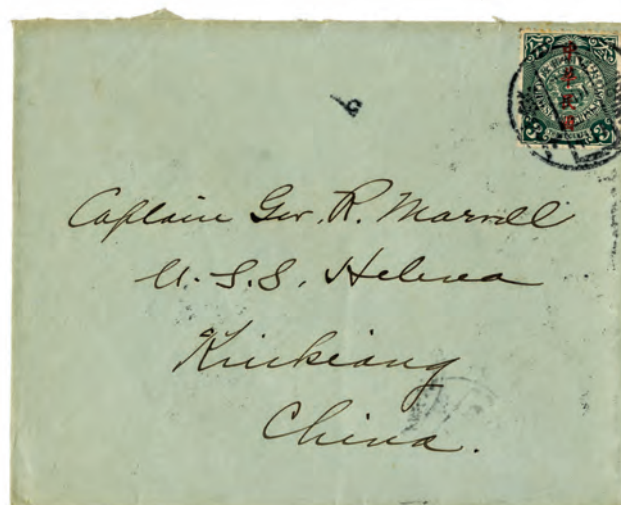 中華民國
Captain Geo. R. Marvell
U.S.S. Helena
Kiukiang
China.